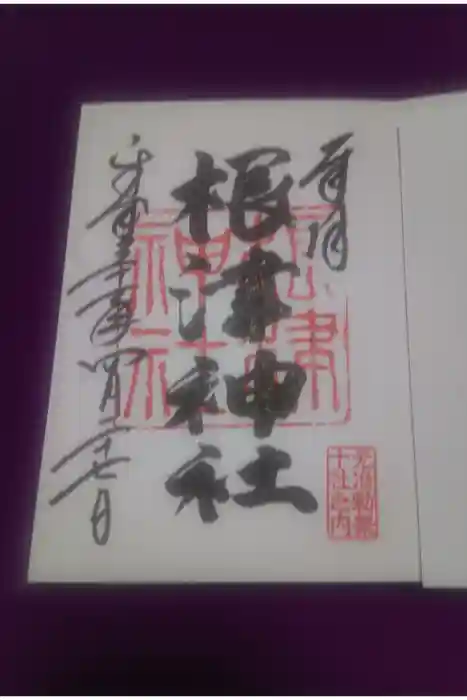 奉拝
根津神社
平成三十年四月二十七日
根津神社
元准勅祭
十社之内